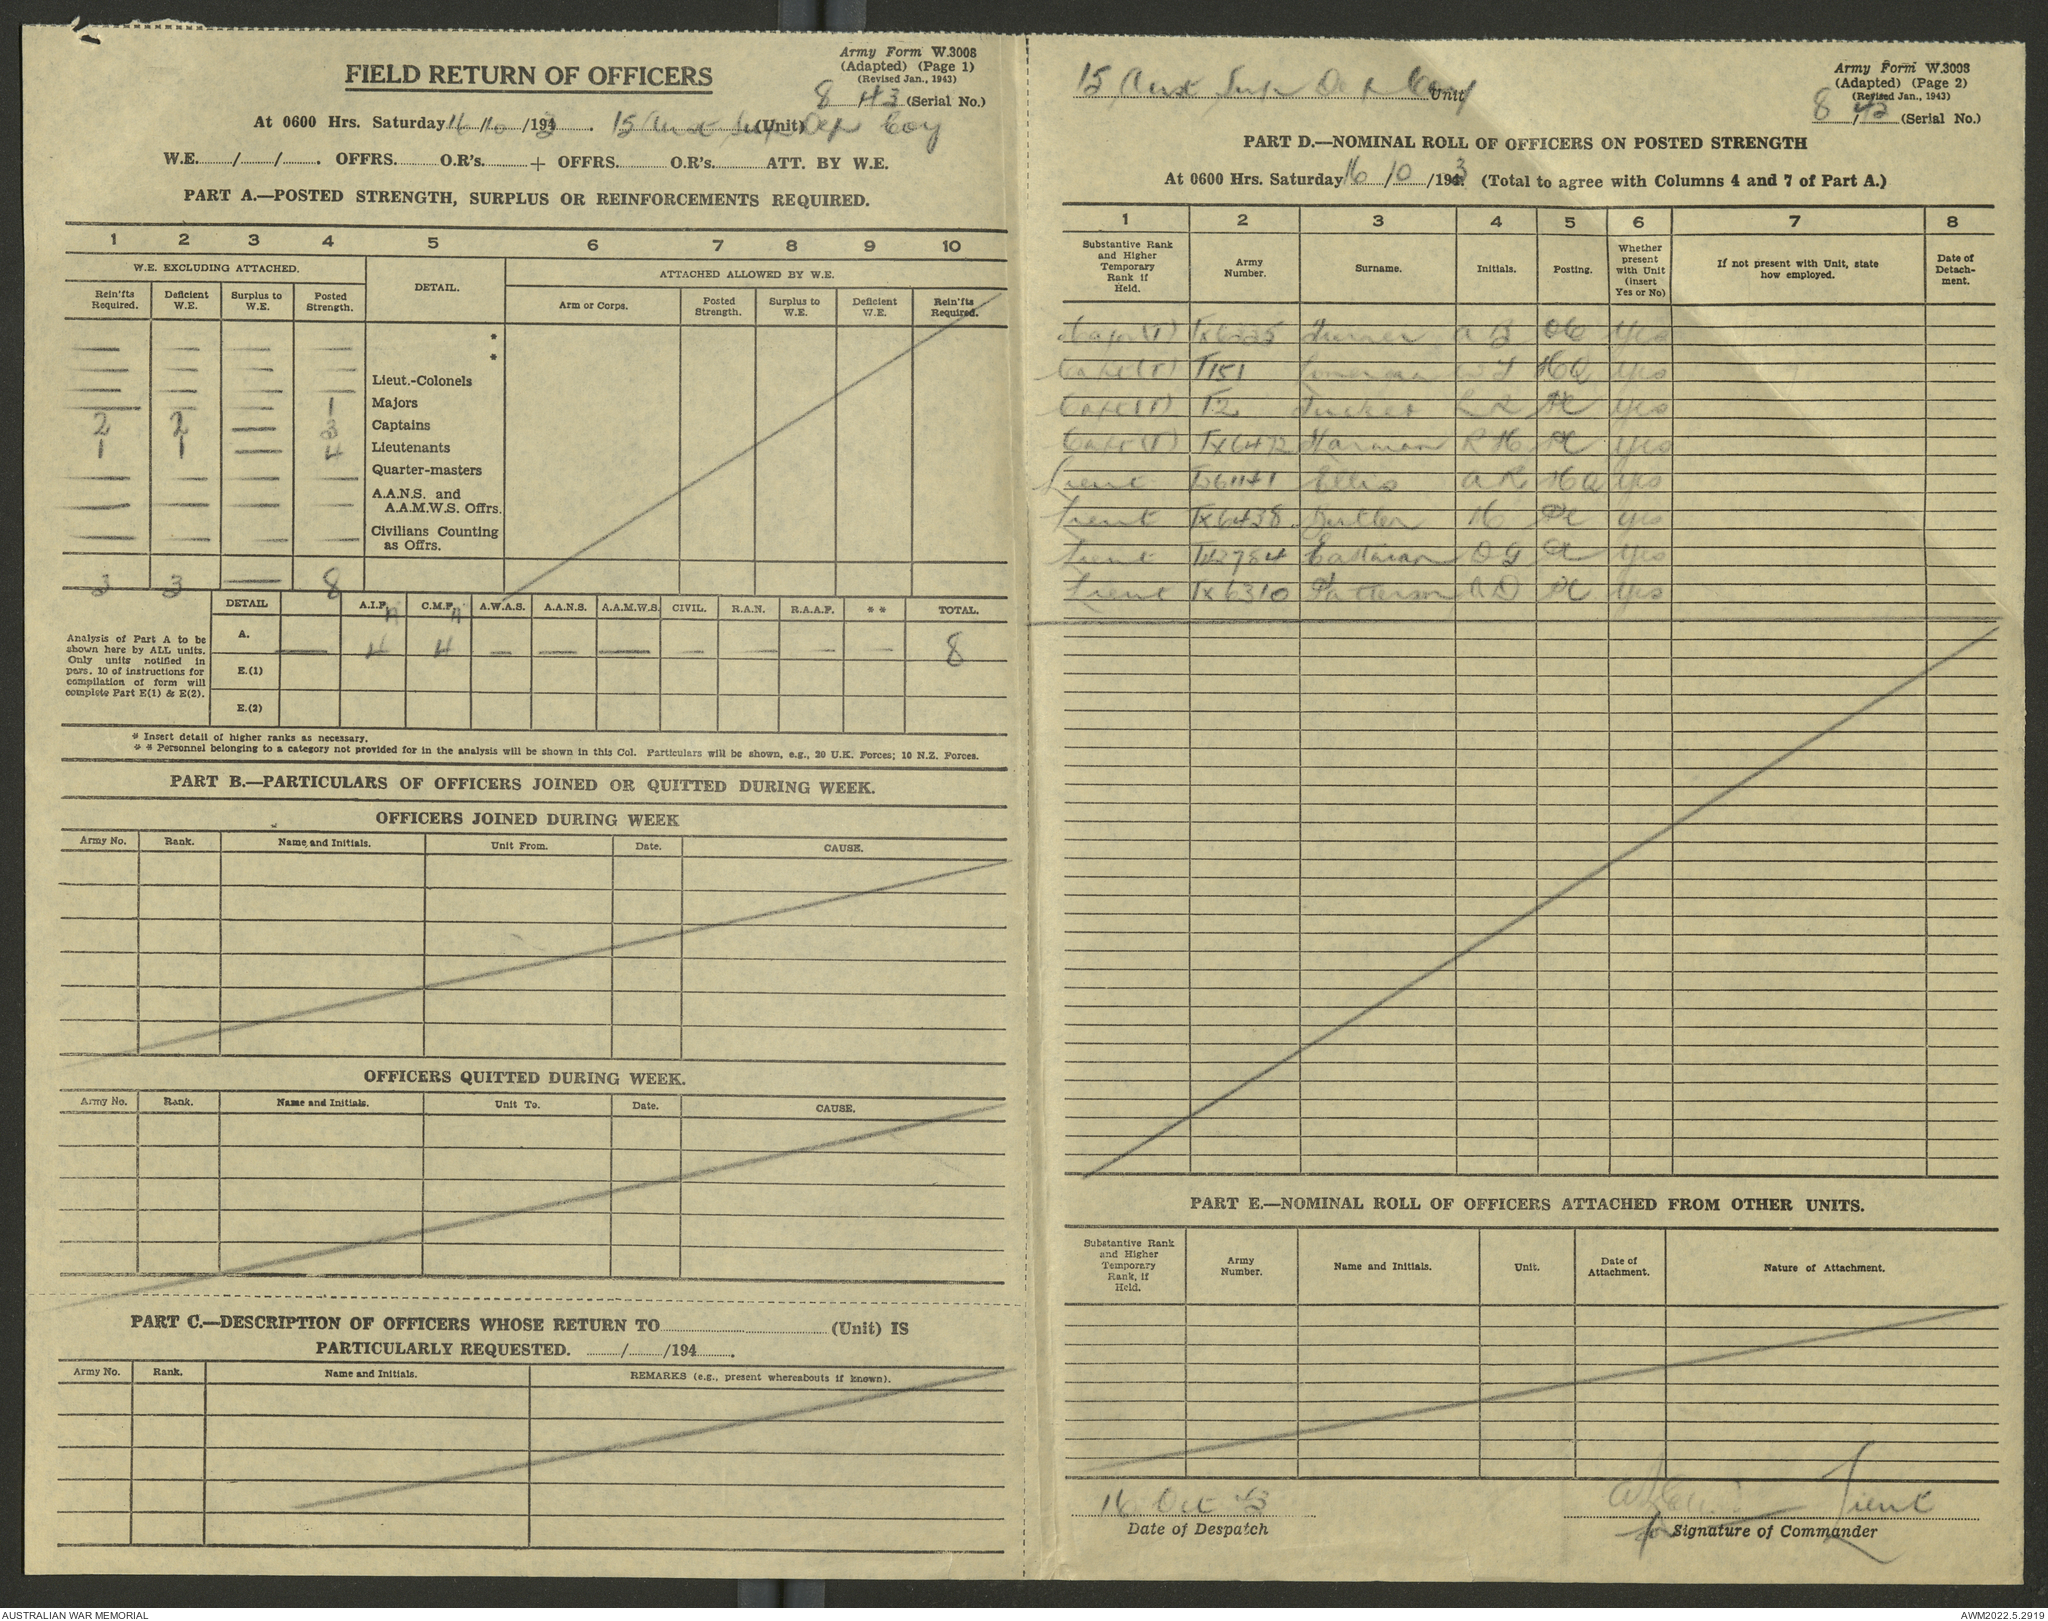 Army Form W.3008
(Adapted) (Page 1)
(Revised Jan., 1943)
FIELD RETURN OF OFFICERS
8 43 (Serial No.)
At 0600 Hrs. Saturday 16/10/1943. 15 Aust Sup Dep Coy (Unit)
W.E. / / . OFFRS. O.R's. + OFFRS. O.R's. ATT. BY W.E.
PART A.—POSTED STRENGTH, SURPLUS OR REINFORCEMENTS REQUIRED.
1 2 3 4 5 6 7 8 9 10
W.E. EXCLUDING ATTACHED. DETAIL. ATTACHED ALLOWED BY W.E.
Rein'fts Required. Deficient W.E. Surplus to W.E. Posted Strength. Arm or Corps. Posted Strength. Surplus to W.E. Deficient W.E. Rein'fts Required.
— — — — *
— — — — *
— — — — Lieut.-Colonels
— — — 1 Majors
2 2 — 3 Captains
1 1 — 4 Lieutenants
— — — — Quarter-masters
— — — — A.A.N.S. and A.A.M.W.S. Offrs.
— — — — Civilians Counting as Offrs.
3 3 — 8
DETAIL A.I.F. C.M.F. A.W.A.S. A.A.N.S. A.A.M.W.S. CIVIL. R.A.N. R.A.A.F. * * TOTAL.
Analysis of Part A to be shown here by ALL units. Only units notified in para. 10 of instructions for compilation of form will complete Part E(1) & E(2).
A. — 4 4 — — — — — — — 8
E.(1)
E.(2)
* Insert detail of higher ranks as necessary.
* * Personnel belonging to a category not provided for in the analysis will be shown in this Col. Particulars will be shown, e.g., 20 U.K. Forces; 10 N.Z. Forces.
PART B.—PARTICULARS OF OFFICERS JOINED OR QUITTED DURING WEEK.
OFFICERS JOINED DURING WEEK
Army No. Rank. Name and Initials. Unit From. Date. CAUSE.
OFFICERS QUITTED DURING WEEK.
Army No. Rank. Name and Initials. Unit To. Date. CAUSE.
PART C.—DESCRIPTION OF OFFICERS WHOSE RETURN TO (Unit) IS
PARTICULARLY REQUESTED. / /194 .
Army No. Rank. Name and Initials. REMARKS (e.g., present whereabouts if known).
15 Aust Sup Dep Coy Unit
Army Form W.3008
(Adapted) (Page 2)
(Revised Jan., 1943)
8/43 (Serial No.)
PART D.—NOMINAL ROLL OF OFFICERS ON POSTED STRENGTH
At 0600 Hrs. Saturday 16/10/1943 (Total to agree with Columns 4 and 7 of Part A.)
1 2 3 4 5 6 7 8
Substantive Rank and Higher Temporary Rank if Held. Army Number. Surname. Initials. Posting. Whether present with Unit (insert Yes or No) If not present with Unit, state how employed. Date of Detach-ment.
Major(T) Turner A B OC Yes
Capt(T) T151 HQ Yes
Capt(T) T2 Tucker Yes
Capt(T) Tx6472 Harman R H Yes
Lieut Ellis A R HQ Yes
Lieut Tx6438 Butler H Yes
Lieut D G Yes
Lieut Tx6310 Patterson Yes
PART E.—NOMINAL ROLL OF OFFICERS ATTACHED FROM OTHER UNITS.
Substantive Rank and Higher Temporary Rank, if Held. Army Number. Name and Initials. Unit. Date of Attachment. Nature of Attachment.
16 Oct 43 Lieut
Date of Despatch for Signature of Commander
AUSTRALIAN WAR MEMORIAL AWM2022.5.2919